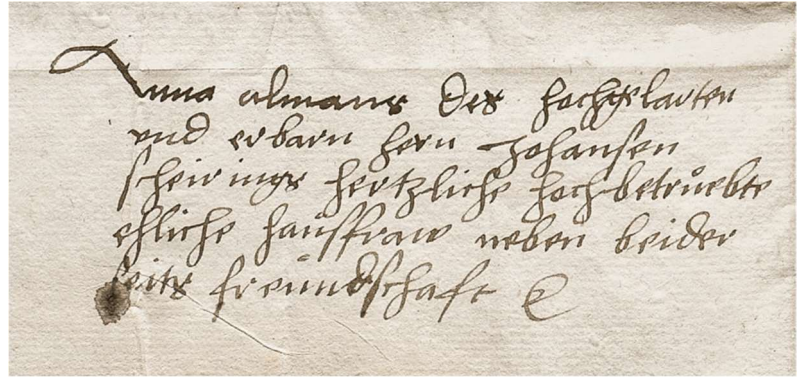 Anna almans des hochgelarten
und erbarn hern Johansen
scheirings hertzliche hochbetrůebte
ehliche hausfraw neben beider
seits freundschaft